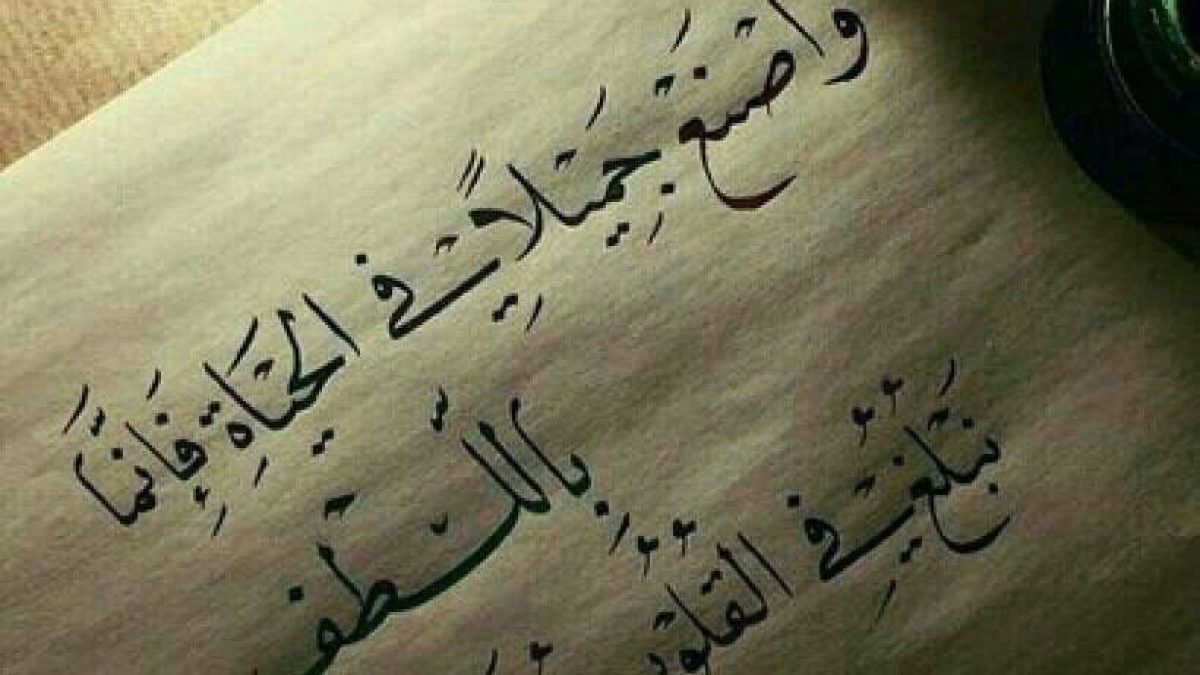 وَاصْنَعْ جَمِيلًا فِي الحَيَاةِ فَإِنَّمَا
بِاللُّطْفِ
نَبْلُغُ فِي القُلُوبِ